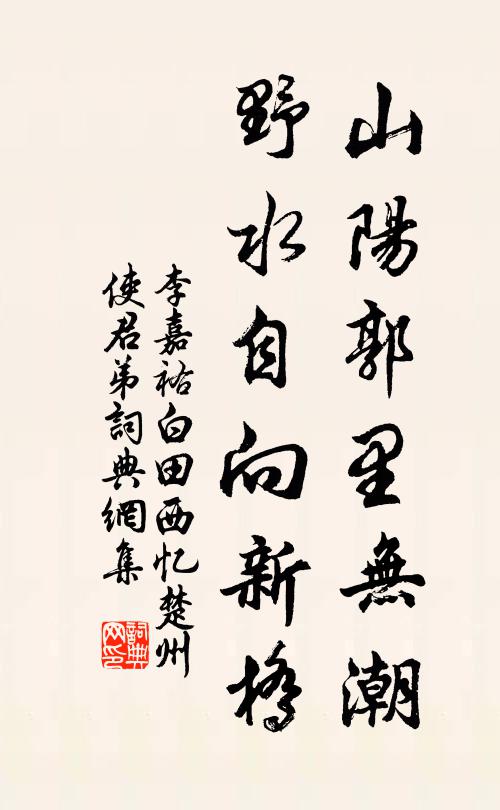 山陽郭里無潮
野水自向新橋
李嘉祐白田西忆楚州
使君弟詞典網集
詞典网印